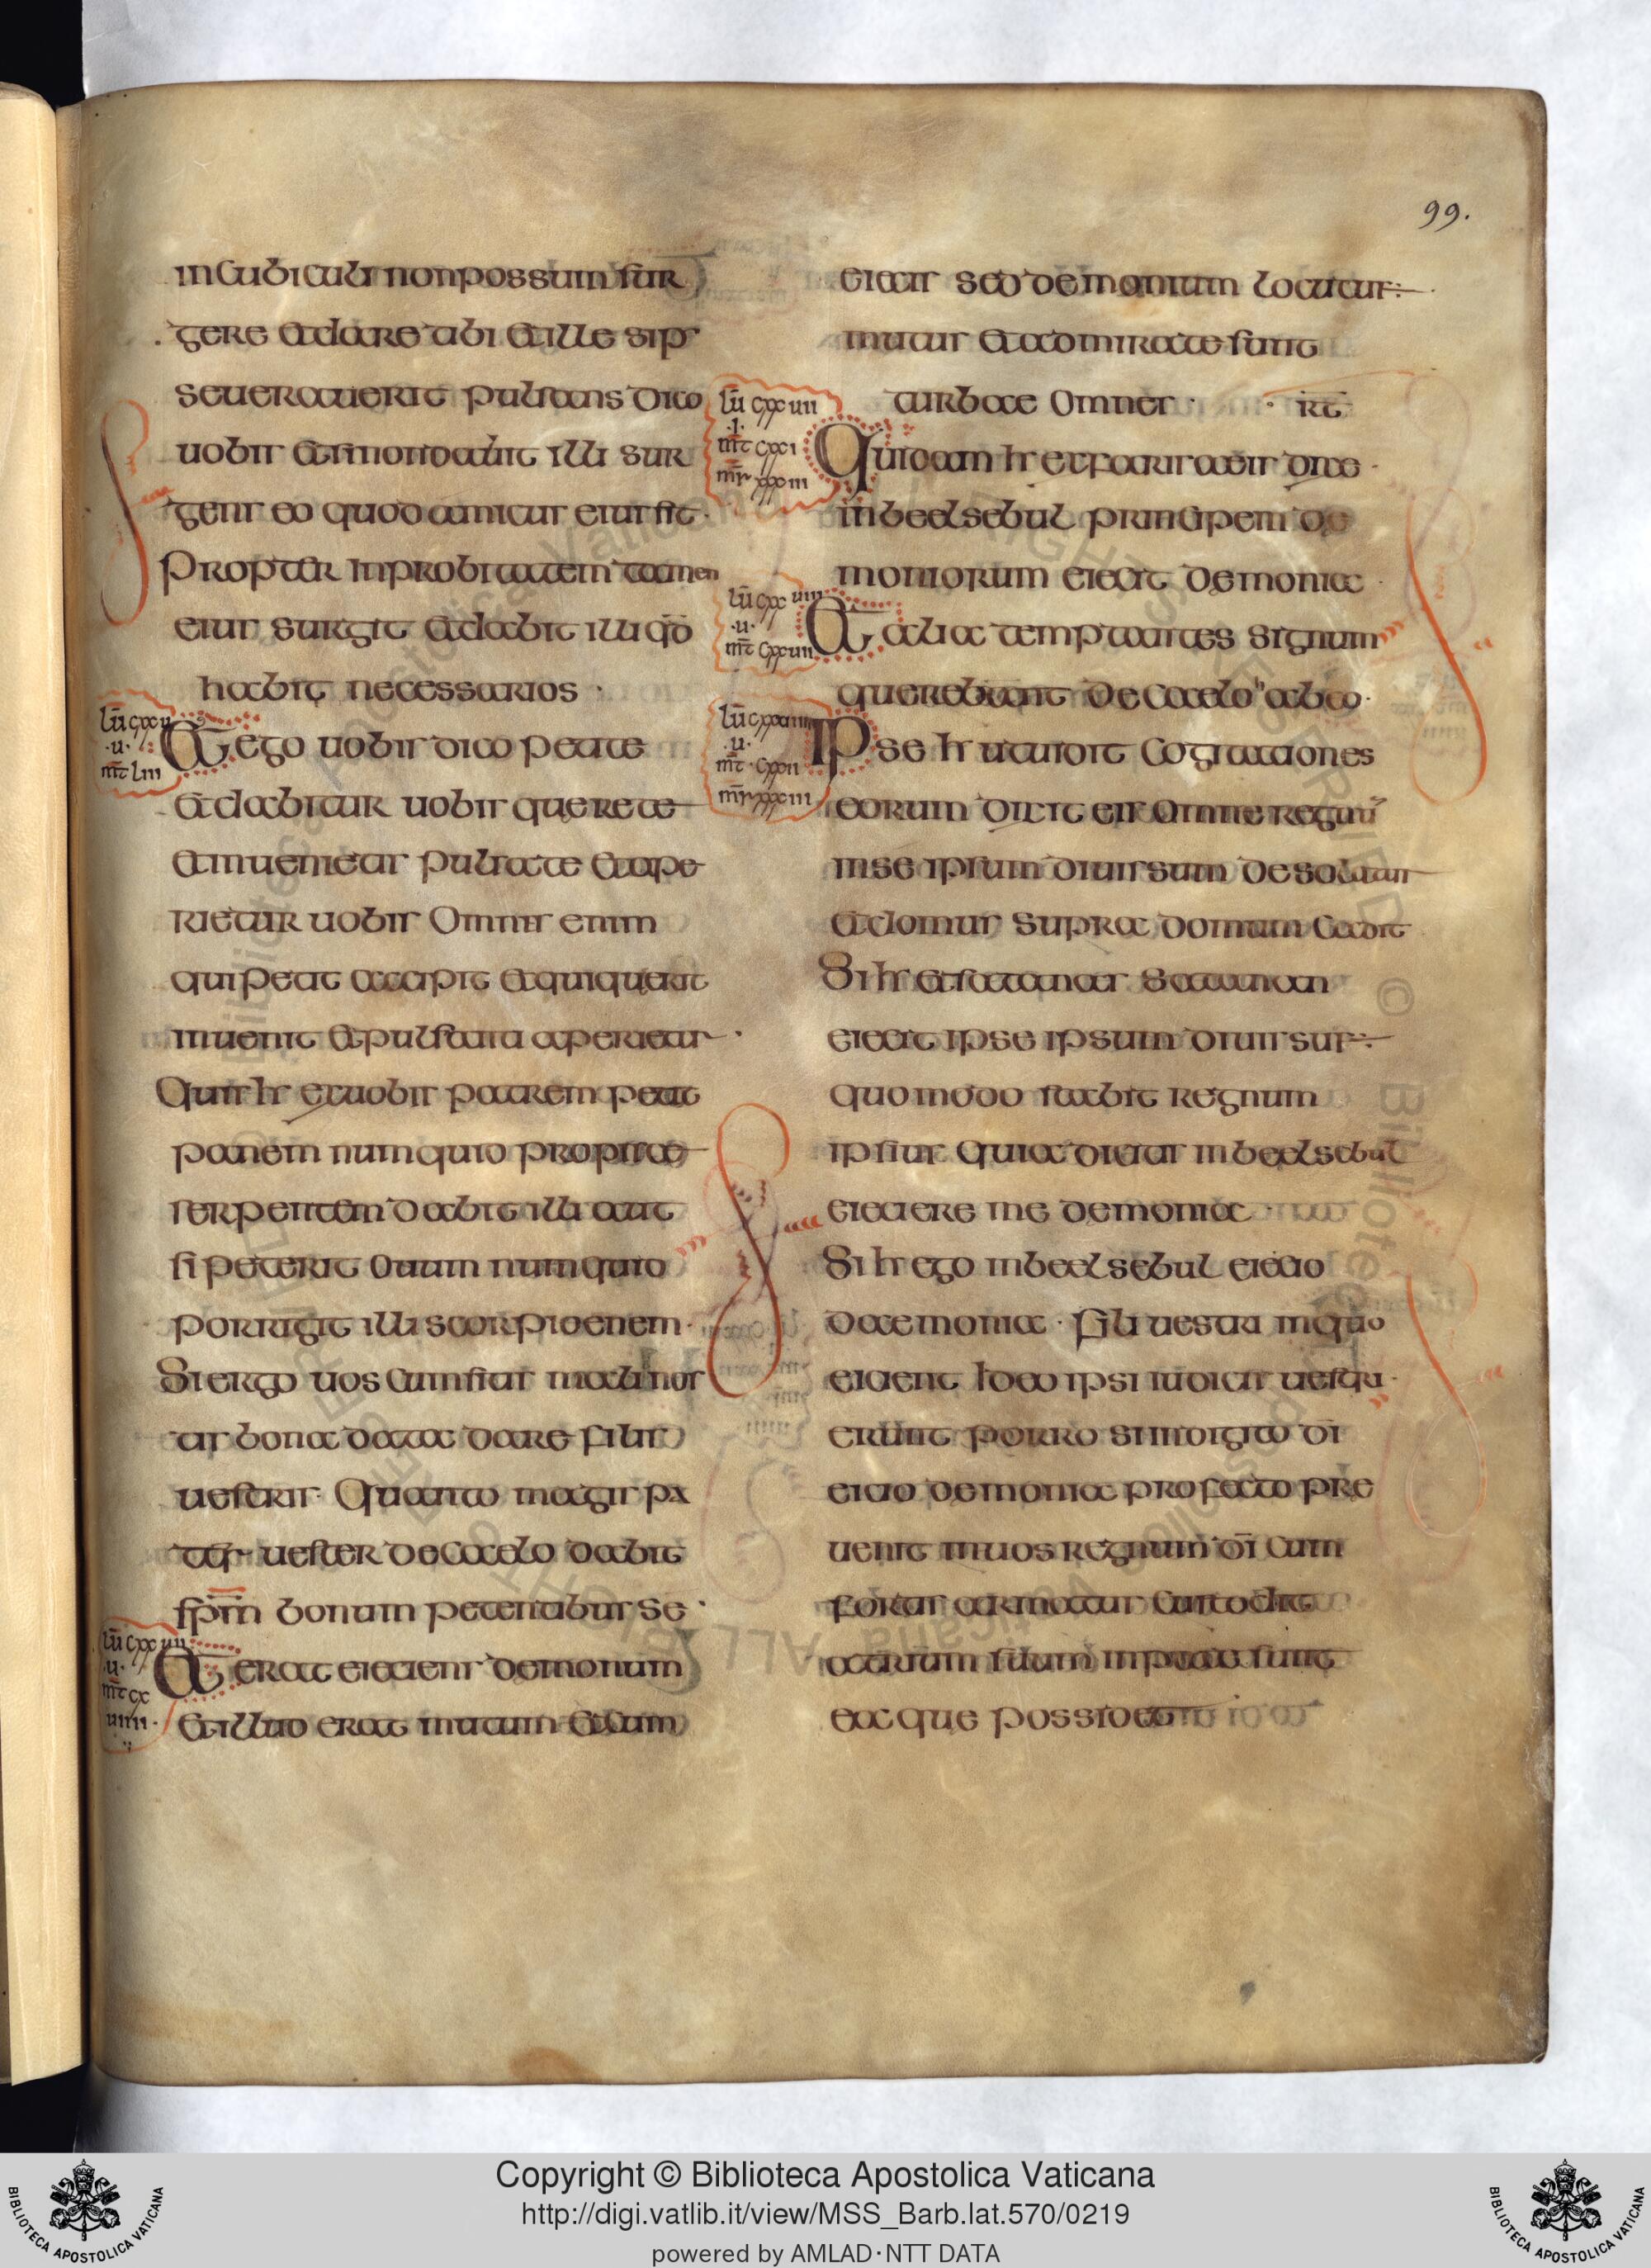 99.
in cubiculi non possum sur
gere et dare tibi et ille si per
seuerauerit pulsans dico
uobis et si non dabit illi sur
gens eo quod amicus eius sit ·
Propter inprobitatem tamen
eius surgit et dabit illi qđ
habit necessarios ·
lū cxx
·u·
mt̄ liii
Et ego uobis dico petite
et dabitur uobis querete
et inuenietis pulsate et ape
rietur uobis Omnis enim
qui petit accipit et qui querit
inuenit et pulsanti aperietur ·
Quis hr̄ ex uobis patrem petit
panem numquid
serpentem dabit illi aut
si peterit ouum numquid
porrigit illi scorpioenem ·
Si ergo uos cum sitis mali nos
tis bona data dare filiis
uestris · Quanto magis pa
ter uester de caelo dabit
sp̄m bonum petentibus se ·
lū cxx
·u·
mt̄ cx
uiiii ·
Et erat eieciens demonum
et illud erat mutum et cum
eiecis sed demonium locutus
mutus et admirate sunt
turbae omnes · · ꝛt
lū cxxuii
·i·
mt̄ cxxi
mr̄ xxxiii
Quidam hr̄ ex farisaeis dixe ·
in beelsebul principem de
moniorum eiecit demonia ·
lū cxxuiii
·u·
mt̄ cxxuii
Et alii temptantes signum
querebant de caelo ab eo ·
·u·
mt̄ · cxxii
mr̄ xxxiii
Ipse hr̄ ut uidit cogitationes
eorum dicit eis omne regnū
in se ipsum diuissum desolatur
et domus supra domum cadit
Si hr̄ et satanas satanan
eiecit ipse ipsum diuissus
quomodo stabit regnum
ipsius quia dicitis in beelsebul
eiecere me demonia ·
Si hr̄ ego in beelsebul eiecio
daemonia · Fili uestri in quo
eicient Ideo ipsi iudicis uestri ·
erunt porro si in digito dī
eicio demonia profecto pre
uenit in uos regnum dī cum
fortis armatus custodit
atrium suum in pace sunt
eaque possidet
Copyright © Biblioteca Apostolica Vaticana
http://digi.vatlib.it/view/MSS_Barb.lat.570/0219
powered by AMLAD·NTT DATA
BIBLIOTECA APOSTOLICA VATICANA
BIBLIOTECA APOSTOLICA VATICANA